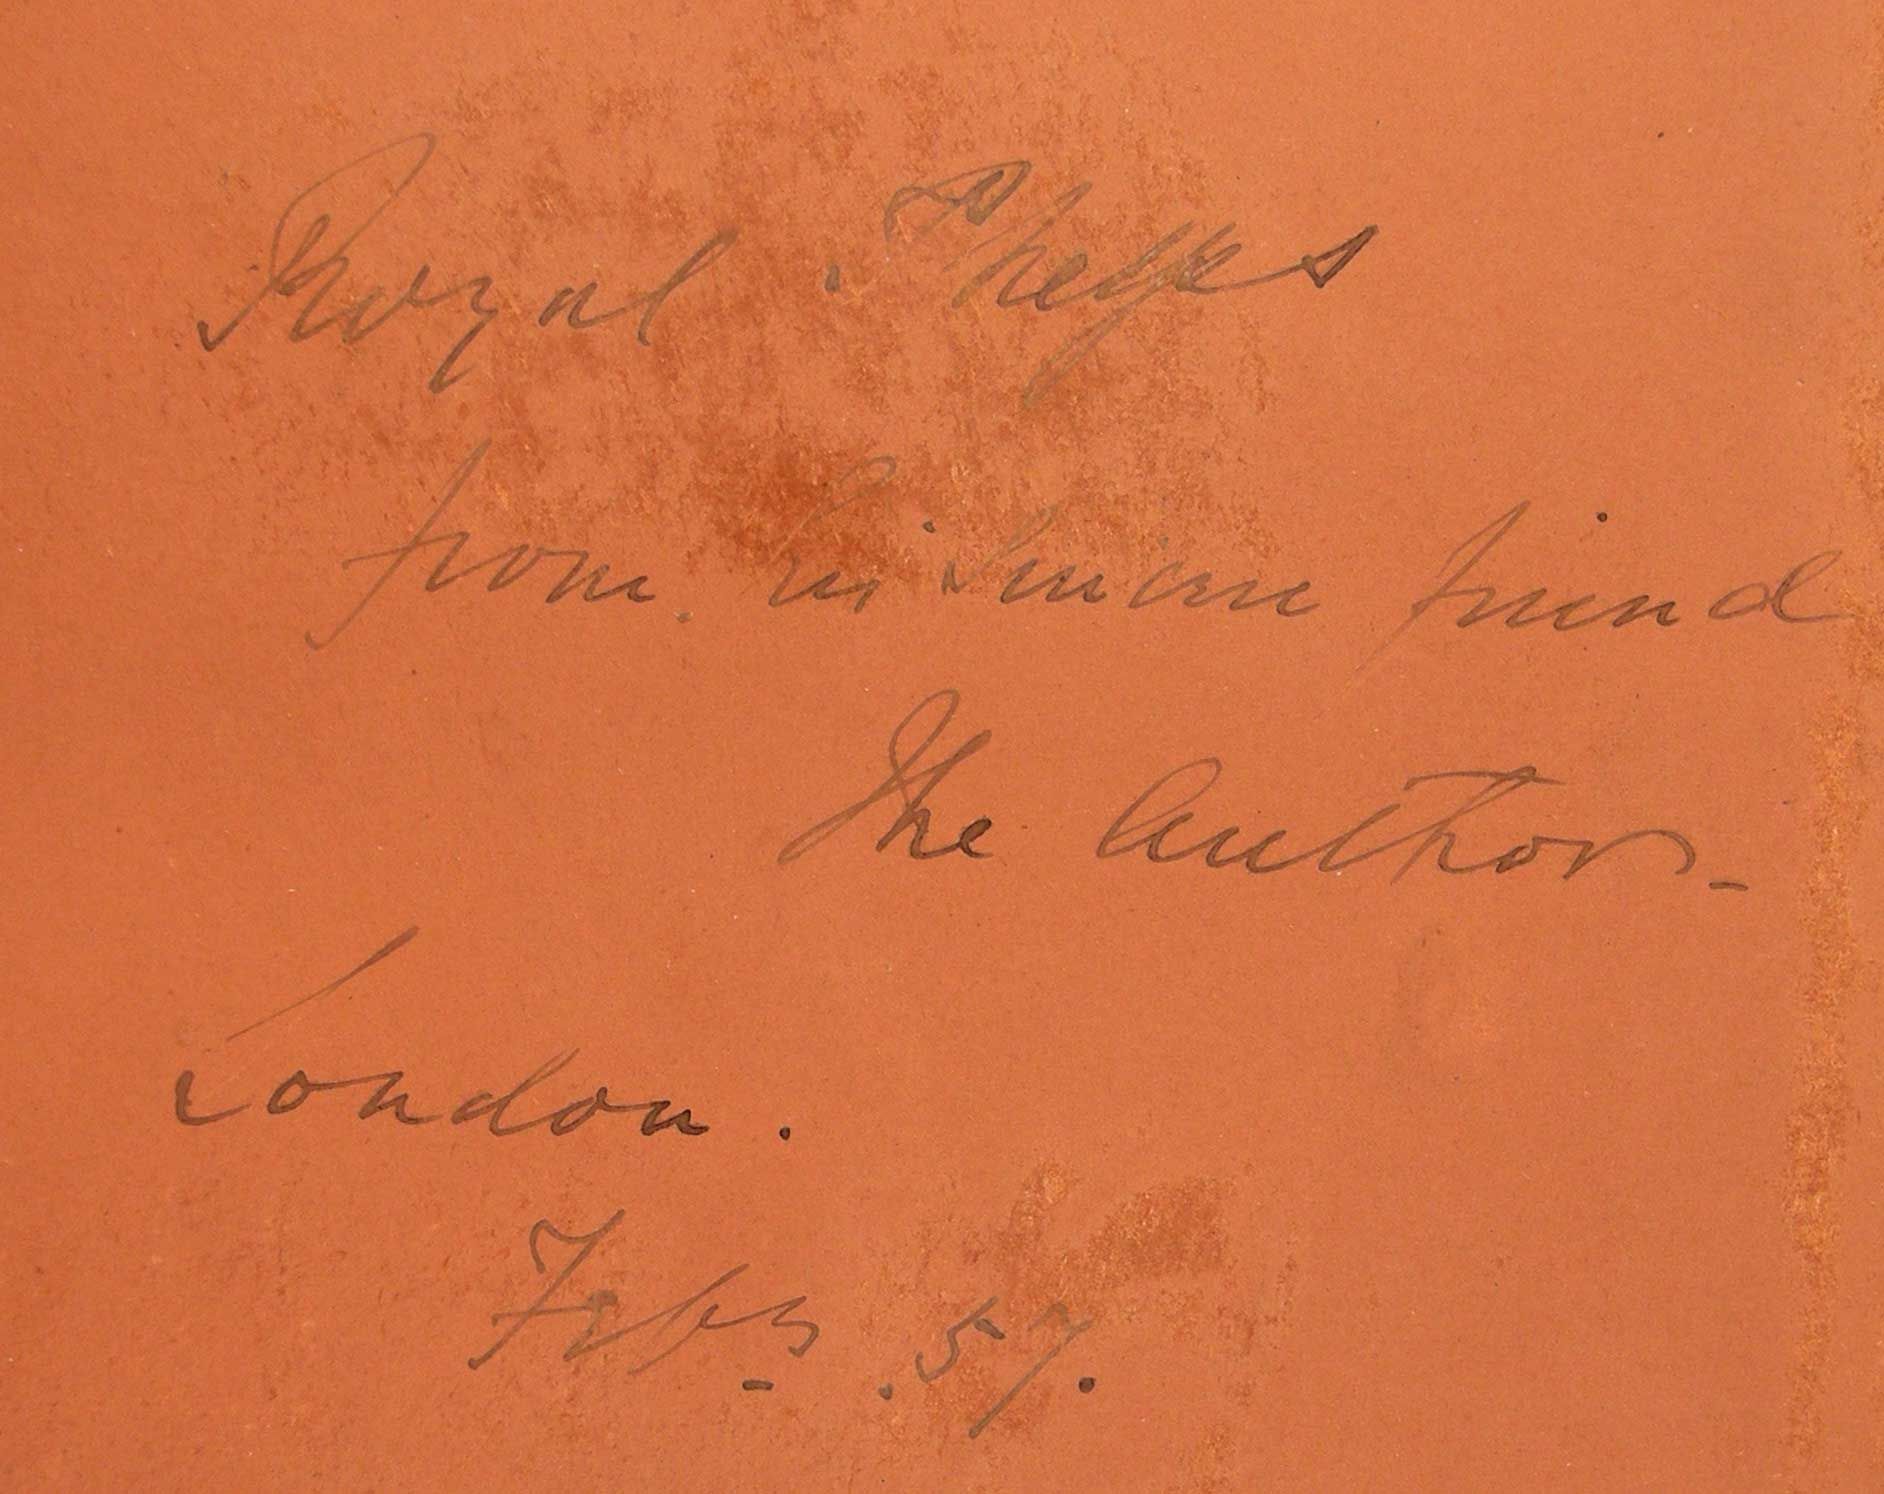 Royal . Phelps
from his Sincere friend
The Author_
London .
Feby .57.